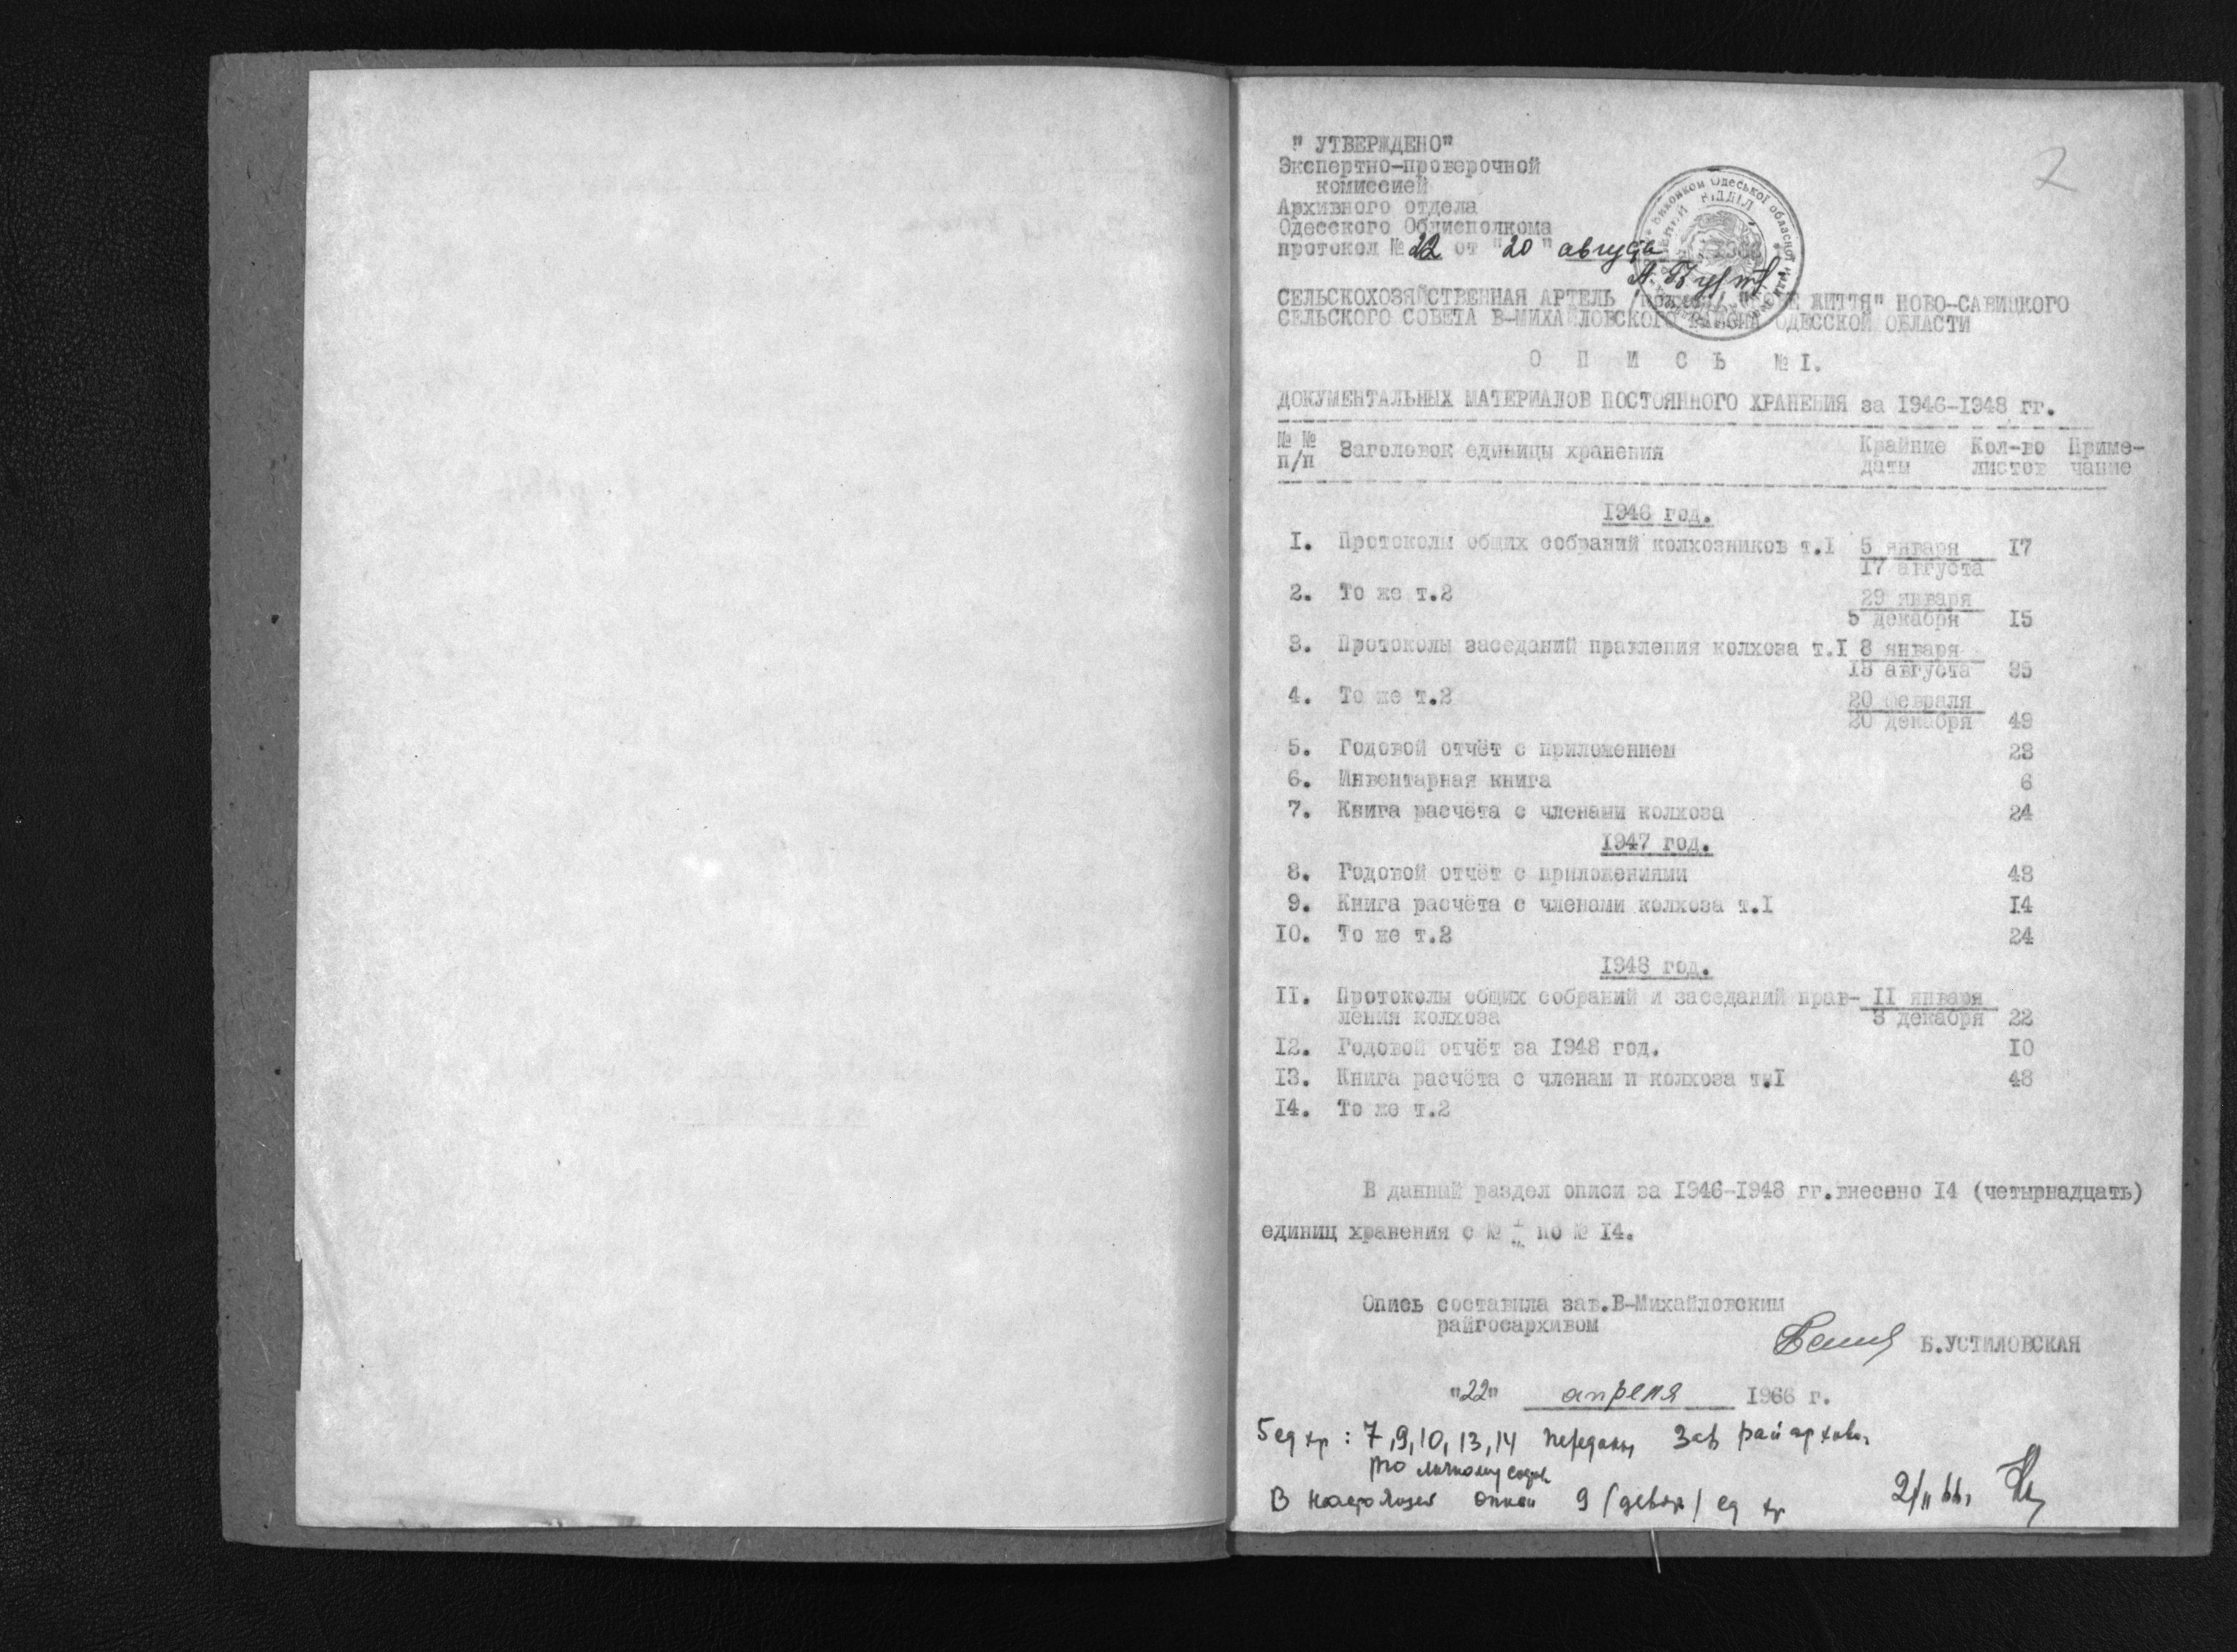 2
" УТВЕРЖДЕНО"
Экспертно-проверочной
комиссией
Архивного отдела
Одесского Облисполкома
протокол № 22 от "20" августа 1966
СЕЛЬСКОХОЗЯЙСТВЕННАЯ АРТЕЛЬ ЖИТТЯ" НОВО-САВИЦКОГО
СЕЛЬСКОГО СОВЕТА В-МИХАЙЛОВСКОГО РАЙОНА ОДЕССКОЙ ОБЛАСТИ
О П И С Ь № I.
ДОКУМЕНТАЛЬНЫХ МАТЕРИАЛОВ ПОСТОЯННОГО ХРАНЕНИЯ за 1946-1948 гг.
№ № Заголовок единицы хранения Крайние Кол-во Приме-
п/п даты листов чание
1946 год.
I. Протоколы общих собраний колхозников т.I 5 января 17
17 августа
2. То же т.2 29 января
5 декабря 15
3. Протоколы заседаний правления колхоза т.I 8 января
18 августа 35
4. То же т.2 20 февраля
20 декабря 49
5. Годовой отчёт с приложением 28
6. Инвентарная книга 6
7. Книга расчёта с членами колхоза 24
1947 год.
8. Годовой отчёт с приложениями 48
9. Книга расчёта с членами колхоза т.I 14
10. То же т.2 24
1948 год.
II. Протоколы общих собраний и заседаний прав- II января
ления колхоза 3 декабря 22
12. Годовой отчёт за 1948 год. 10
13. Книга расчёта с членам и колхоза т.I 48
14. То же т.2
В данный раздел описи за 1946-1948 гг.внесено 14 (четырнадцать)
единиц хранения с № I по № 14.
Опись составила зав.В-Михайловским
райгосархивом
Б.УСТИЛОВСКАЯ
"22" апреля 1966 г.
5 ед хр : 7,9,10,13,14 переданы Зав райархивом
по личному
В настоящей описи 9 (девять) ед хр